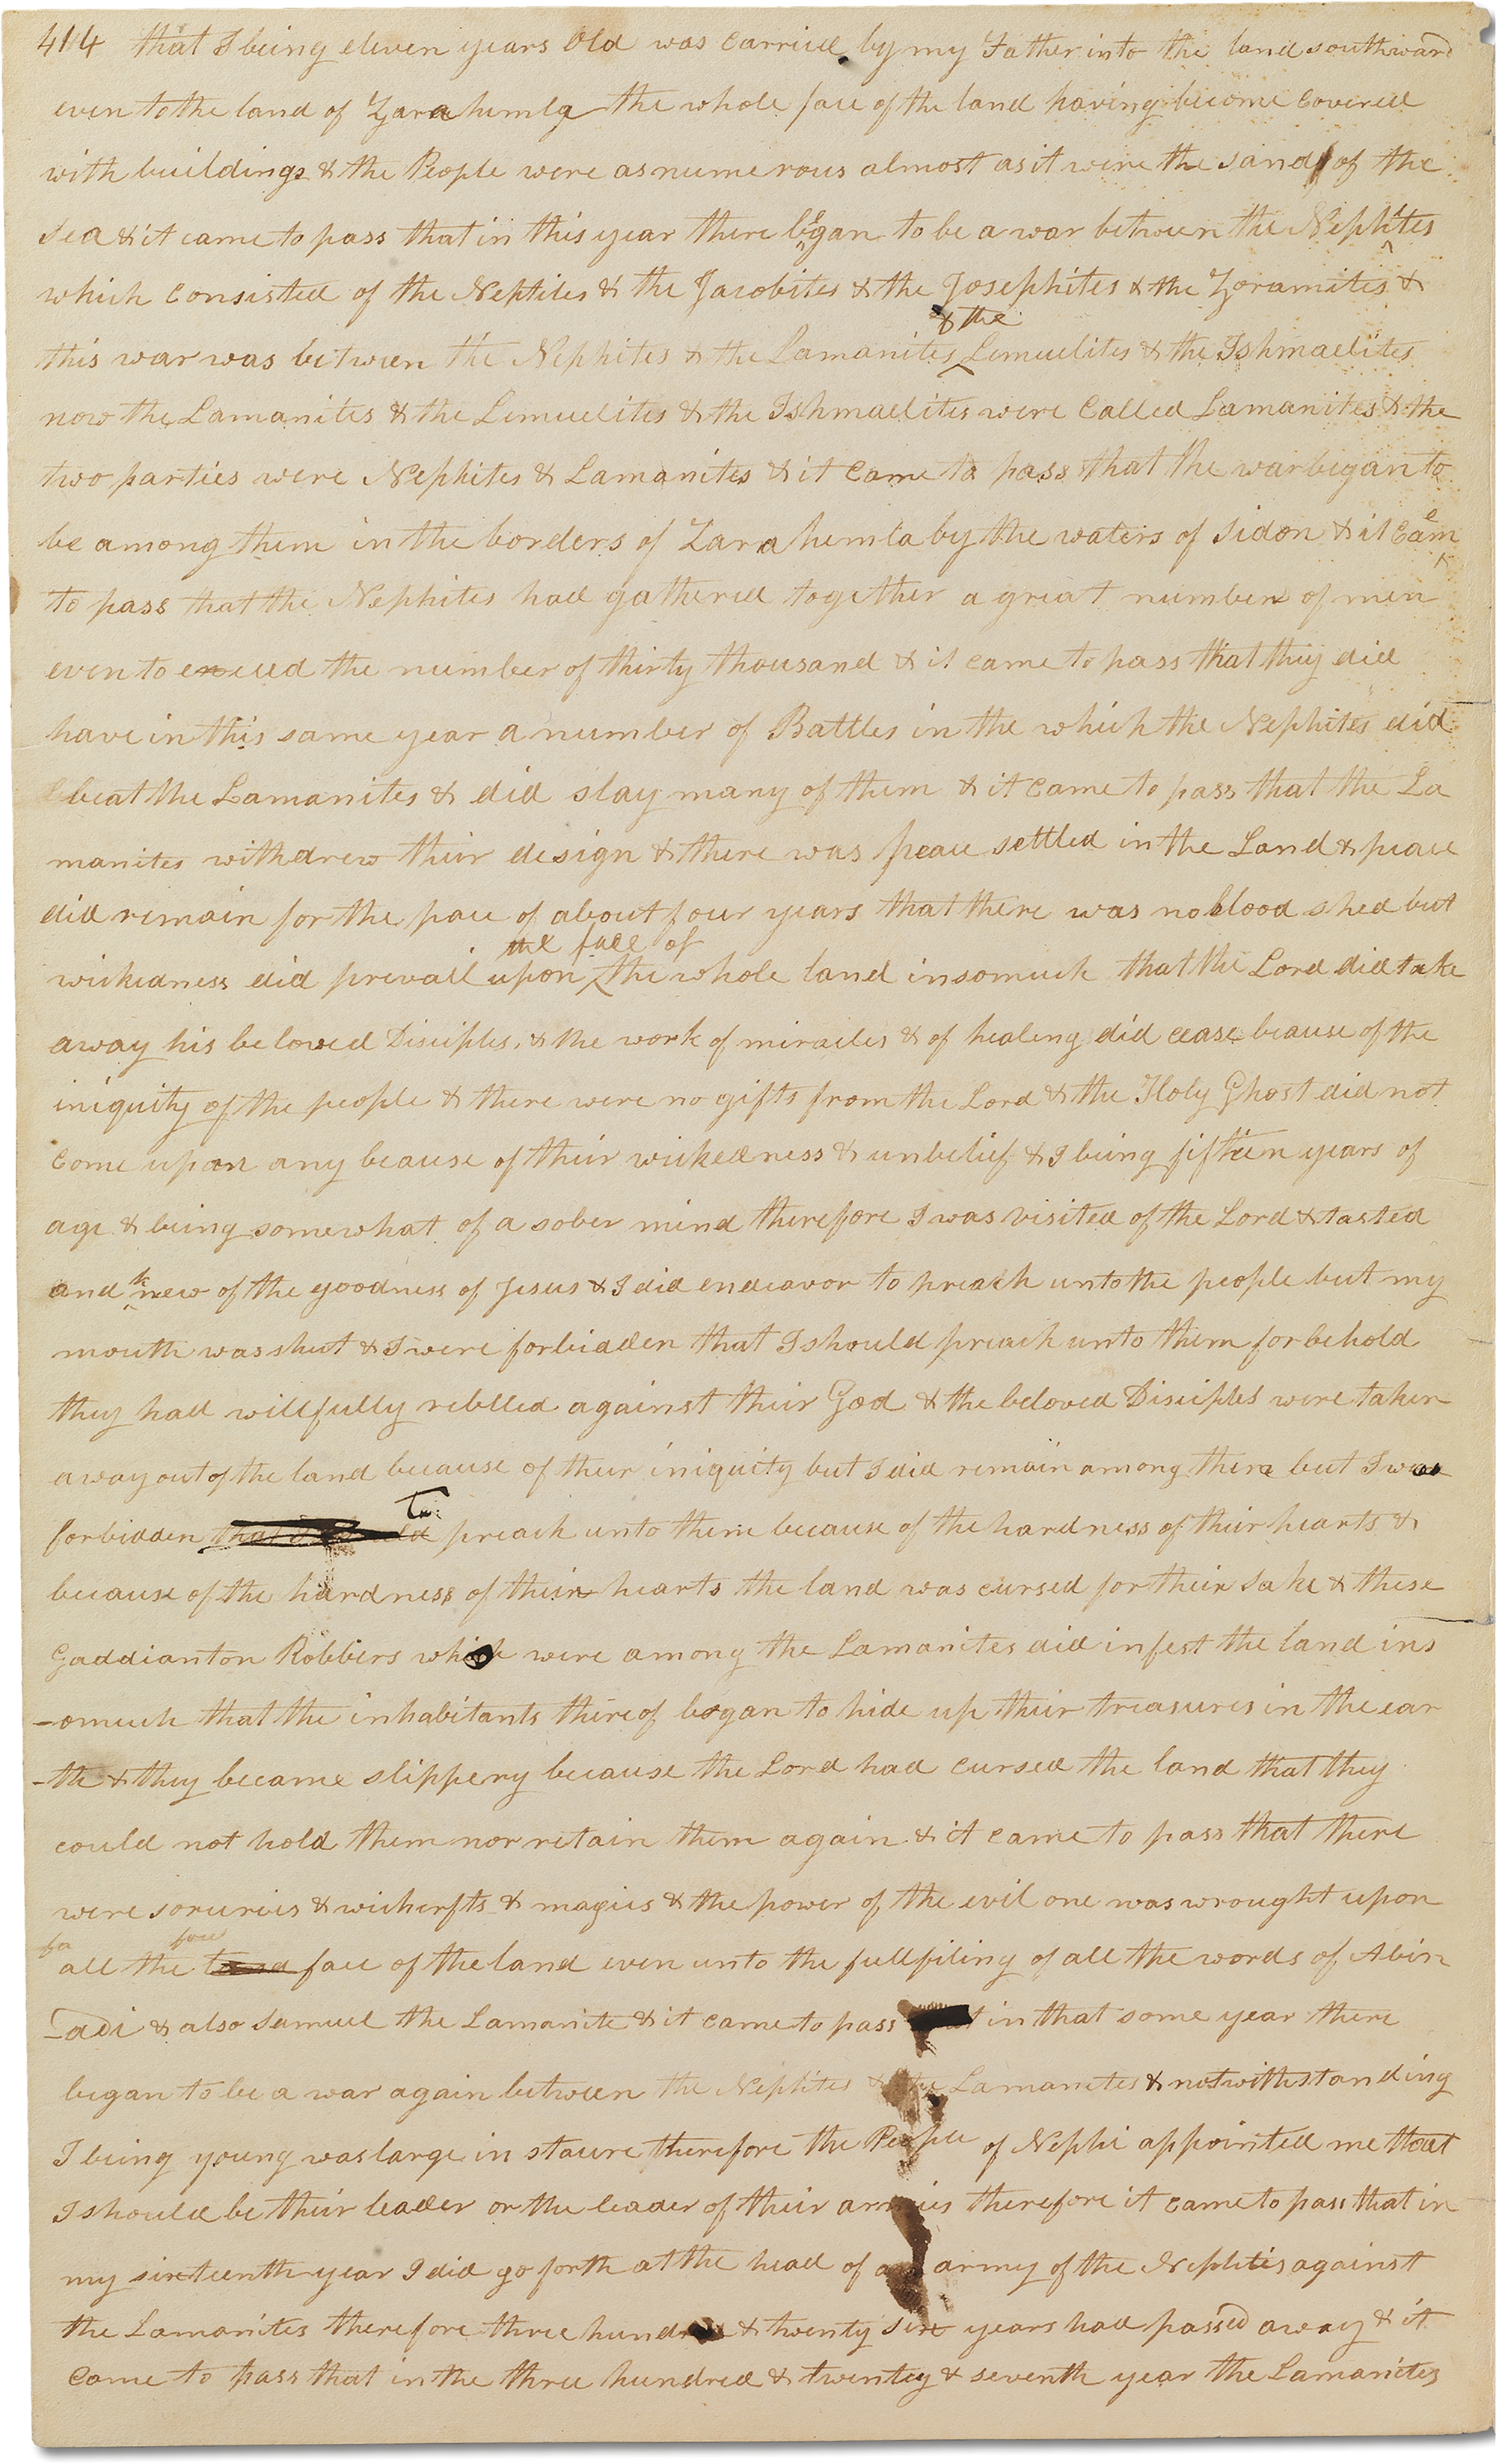 414 that I being eleven years Old was carried by my Father into the land southward
even to the land of Zarahemla the whole face of the land having become covered
with buildings & the People were as numerous almost as it were the sand of the
Sea & it came to pass that in this year there began to be a war between the Nephites
which consisted of the Nephites & the Jacobites & the Josephites & the Zoramites &
& the
this war was between the Nephites & the Lamanites Lemuelites & the Ishmaelites
now the Lamanites & the Lemuelites & the Ishmaelites were called Lamanites & the
two parties were Nephites & Lamanites & it came to pass that the war began to
be among them in the borders of Zarahemla by the waters of Sidon & it came
to pass that the Nephites had gathered together a great number of men
even to exceed the number of thirty thousand & it came to pass that they did
have in this same year a number of Battles in the which the Nephites did
beat the Lamanites & did slay many of them & it came to pass that the La
manites withdrew their design & there was peace settled in the Land & peace
did remain for the pace of about four years that there was no blood shed but
the face of
wickedness did prevail upon the whole land insomuch that the Lord did take
away his beloved Disciples, & the work of miracles & of healing did cease because of the
iniquity of the people & there were no gifts from the Lord & the Holy Ghost did not
come upon any because of their wickedness & unbelief & I being fifteen years of
age & being somewhat of a sober mind therefore I was visited of the Lord & tasted
and knew of the goodness of Jesus & I did endeavor to preach unto the people but my
mouth was shut & I were forbidden that I should preach unto them for behold
they had willfully rebelled against their God & the beloved Disciples were taken
away out of the land because of their iniquity but I did remain among them but I was
to
forbidden that I should preach unto them because of the hardness of their hearts &
because of the hardness of their hearts the land was cursed for their sake & these
Gaddianton Robbers which were among the Lamanites did infest the land ins
-omuch that the inhabitants thereof began to hide up their treasures in the ear
-th & they became slippery because the Lord had cursed the land that they
could not hold them nor retain them again & it came to pass that there
were sorceries & wichcrfts & magics & the power of the evil one was wrought upon
fa face
all the land face of the land even unto the fullfiling of all the words of Abin
-adi & also Samuel the Lamanite & it came to pass that in that same year there
began to be a war again between the Nephites & the Lamanites & notwithstanding
I being young was large in staure therefore the People of Nephi appointed me that
I should be their leader or the leader of their armies therefore it came to pass that in
my sixteenth year I did go forth at the head of an army of the Nephites against
the Lamanites therefore three hundred & twenty six years had passed away & it
came to pass that in the three hundred & twenty & seventh year the Lamanites